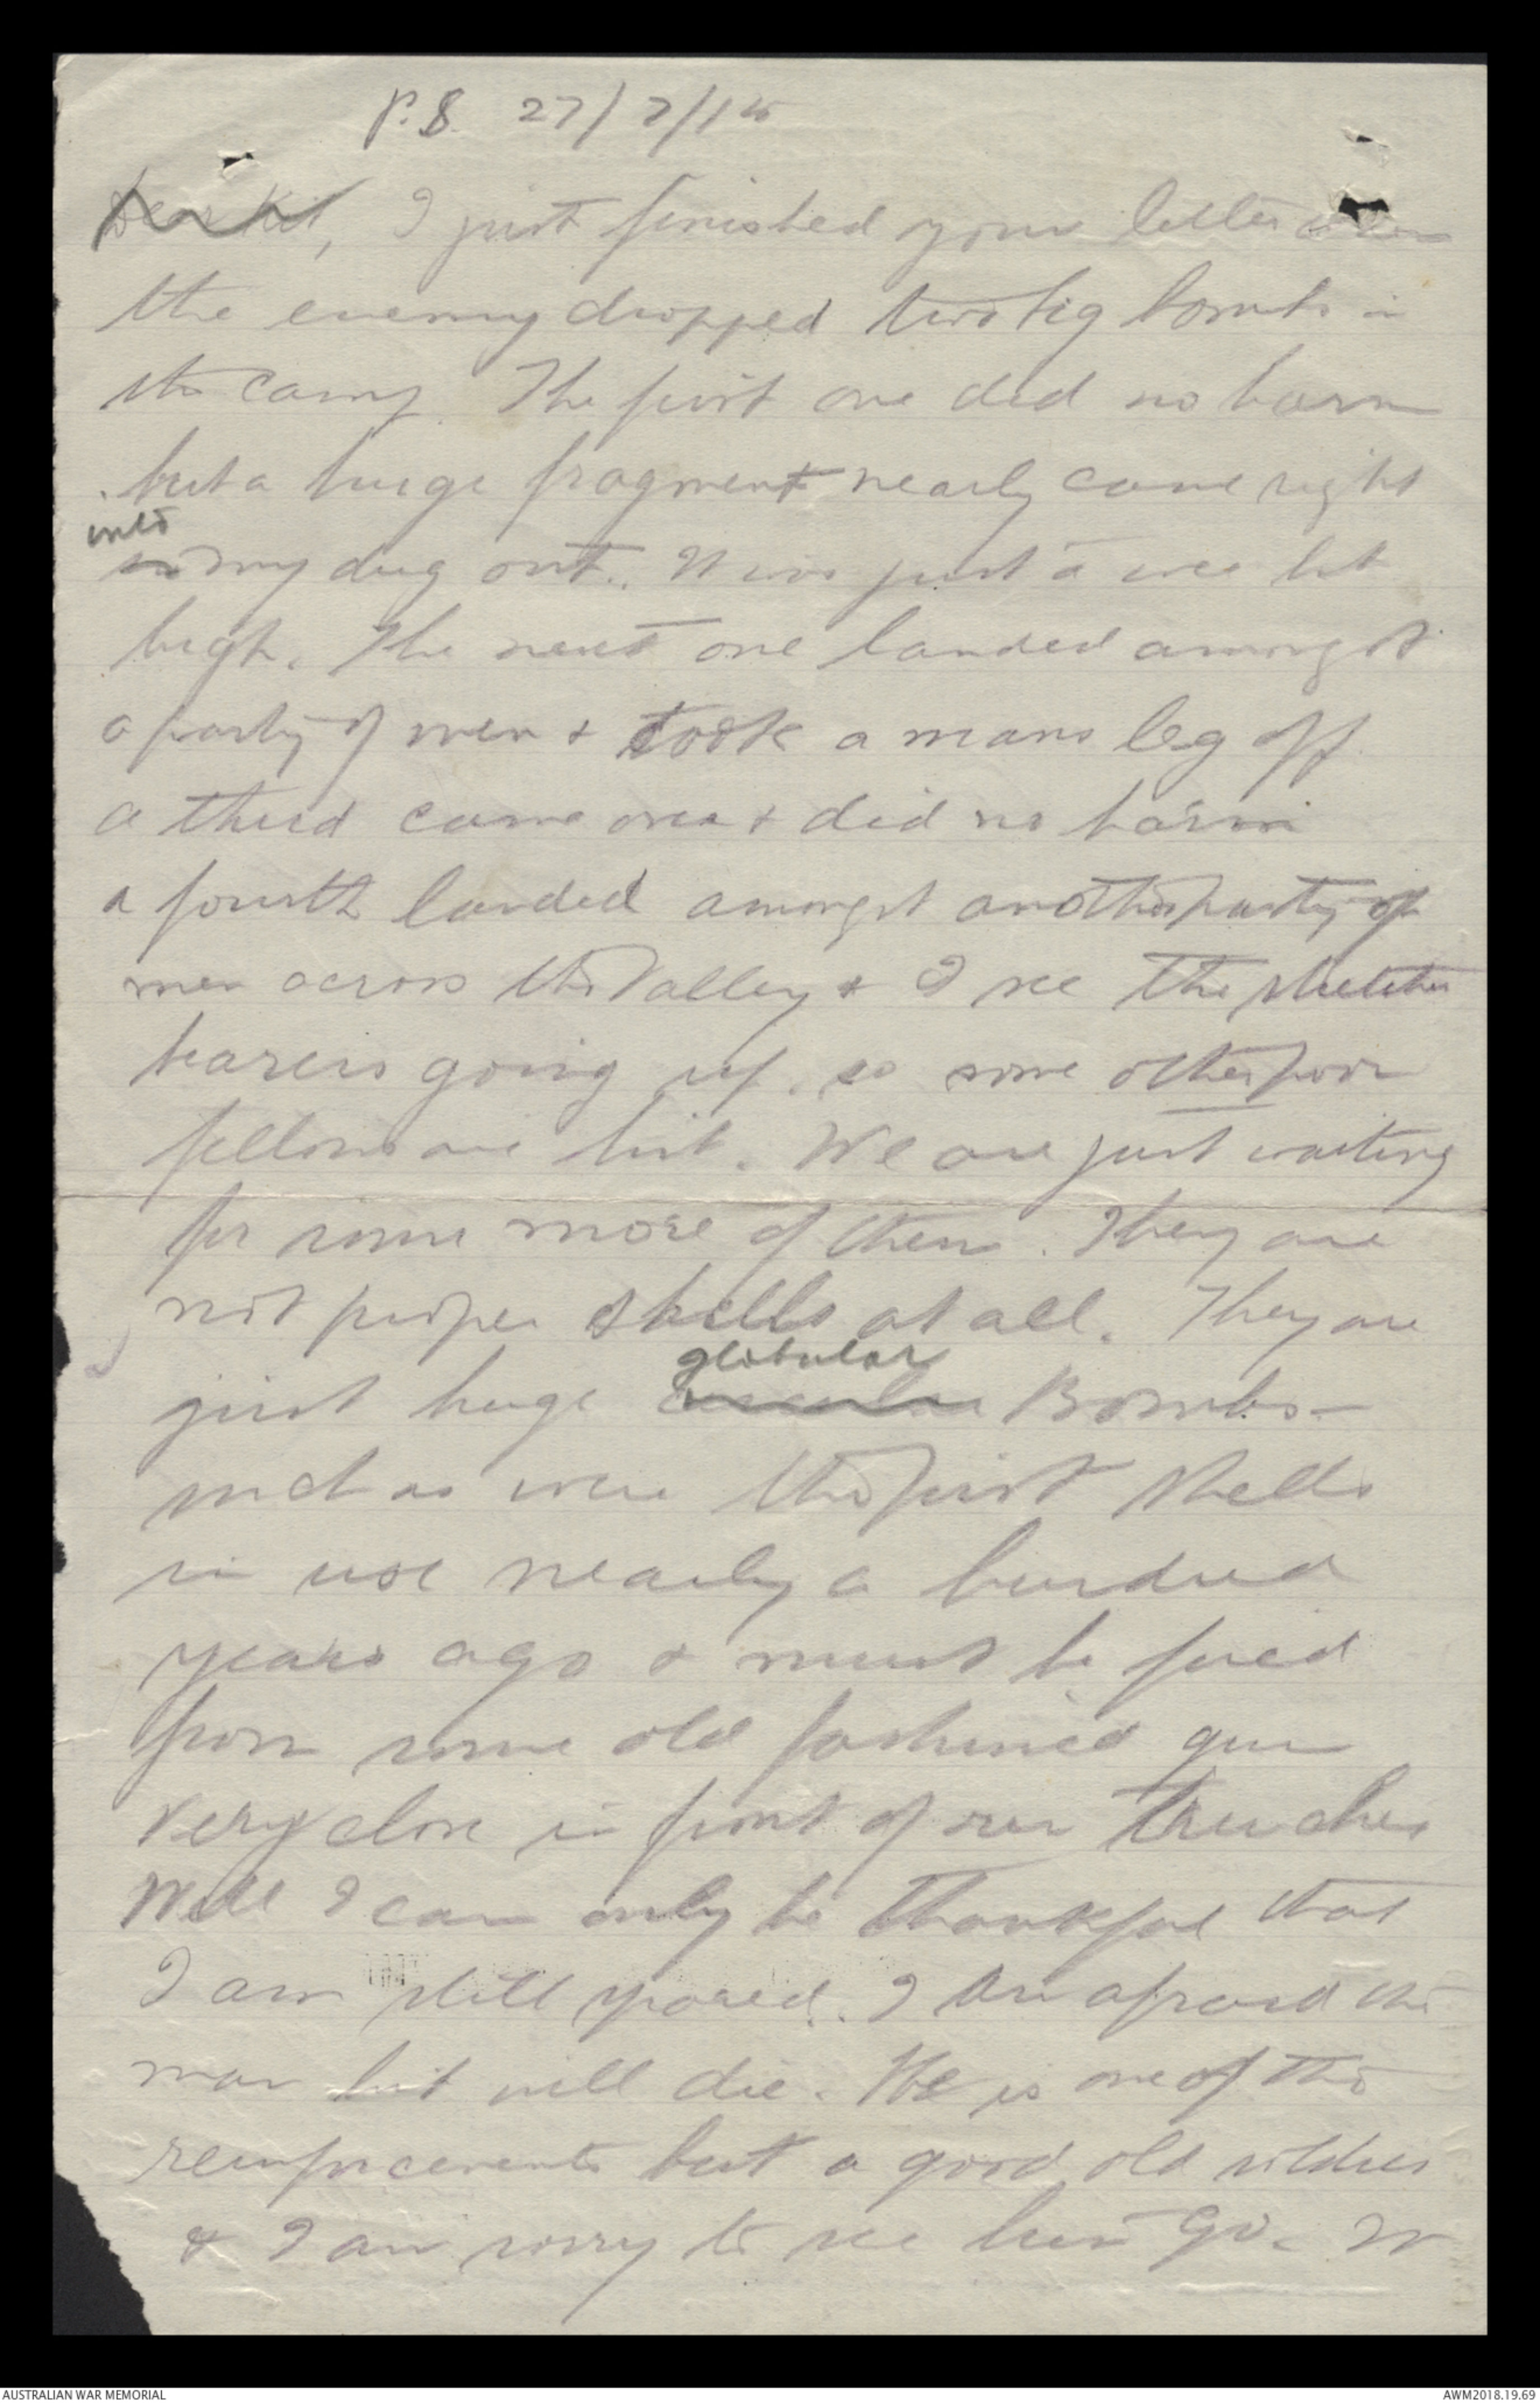 P.S. 27/7/15
Dear Kit, I just finished your letter when
the enemy dropped two big bombs in
the camp. The first one did no harm
but a huge fragment nearly came right
into
my dug out. It was just a wee bit
high. The next one landed amongst
a party of men & took a mans leg off
a third came over & did no harm
a fourth landed amongst another party of
men across the Valley & I see the stretcher
bearers going up. so some other poor
fellows are hit. We are just waiting
for some more of them. They are
not proper shells at all. They are
globular
just huge circular Bombs -
such as were the first shells
in use nearly a hundred
years ago & must be fired
from some old fashioned gun
very close in front of our trenches
Well I can only be thankful that
I am still spared. I am afraid the
man hit will die. He is one of the
reinforcements but a good old soldier
& I am sorry to see him go. In
AUSTRALIAN WAR MEMORIAL
AWM2018.19.69